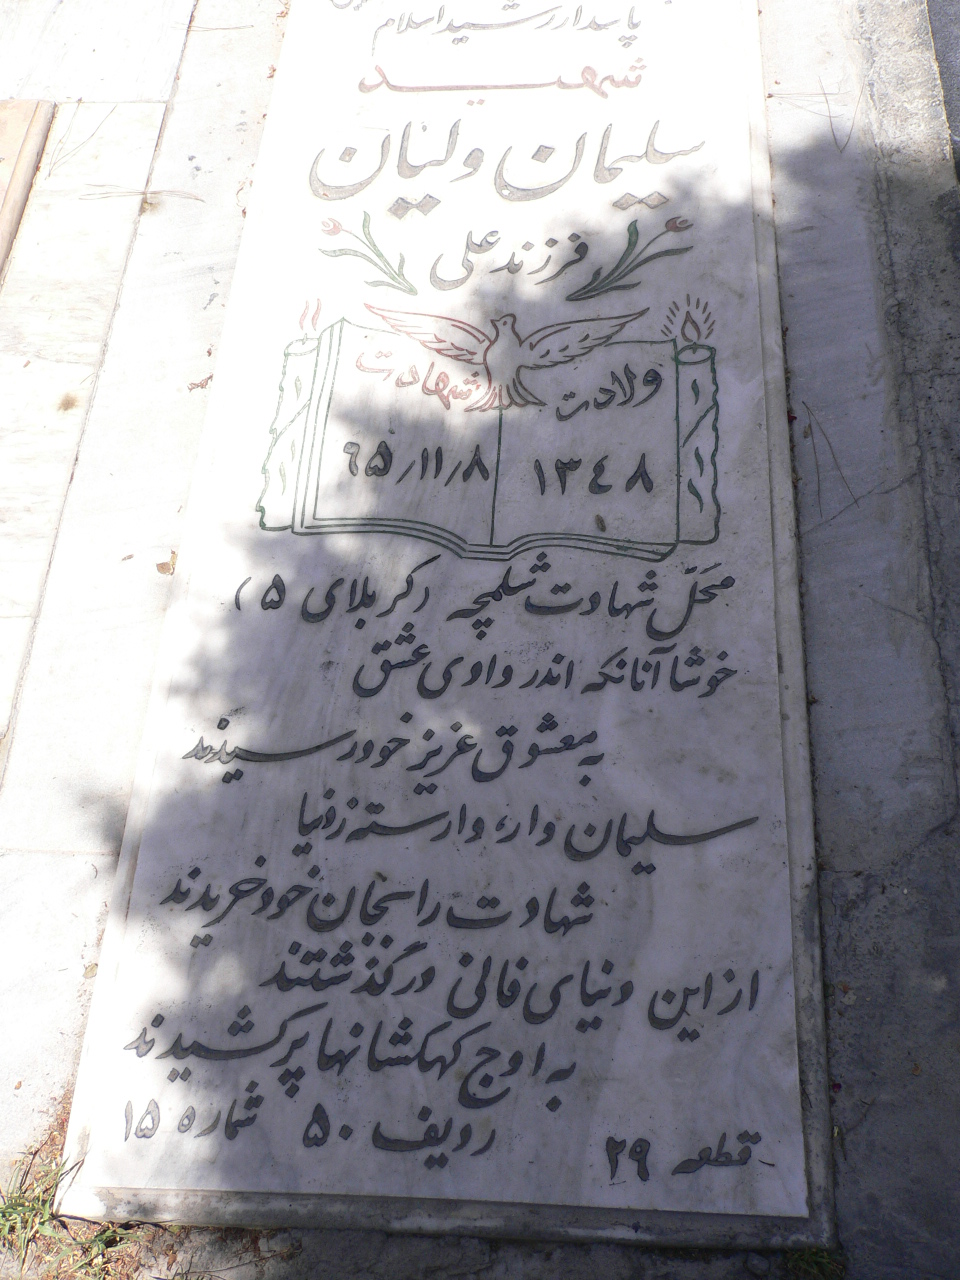 پاسدار رشید اسلام
شهید
سلیمان ولیان
فرزند علی
ولادت شهادت
۱۳۴۸ ۶۵/۱۱/۸
محل شهادت شلمچه (کربلای ۵)
خوشا آنانکه اندر وادی عشق
به معشوق عزیز خود رسیدند
سلیمان وار، وارسته ز دنیا
شهادت را بجان خود خریدند
از این دنیای فانی در گذشتند
به اوج کهکشانها پر کشیدند
قطعه ۲۹ ردیف ۵۰ شماره ۱۵